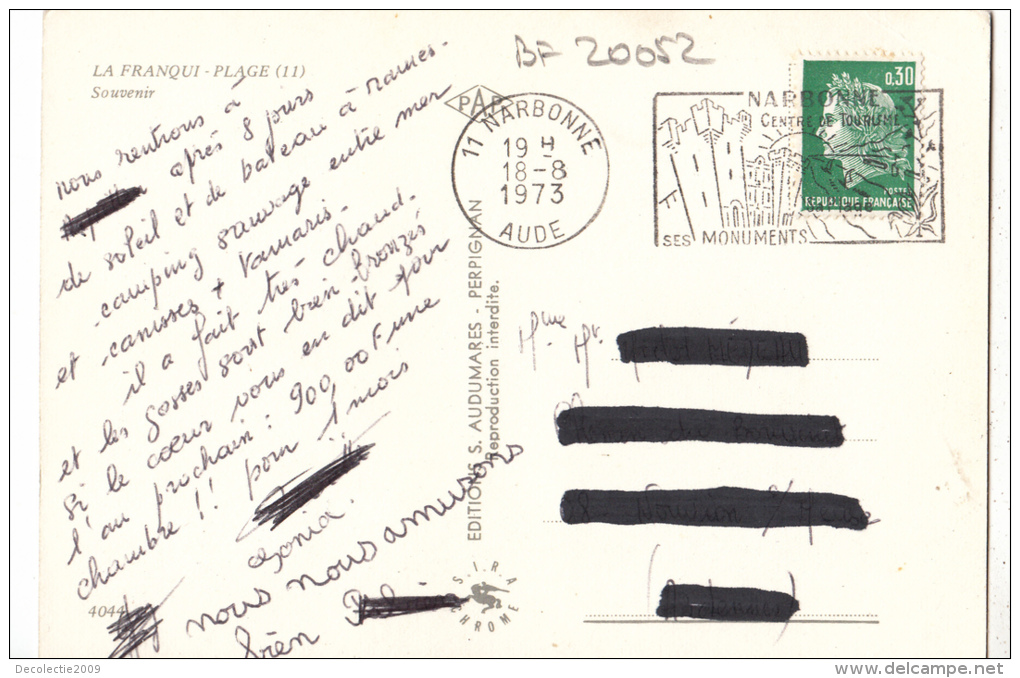 LA FRANQUI - PLAGE (11)
Souvenir
BF 20052
nous rentrons à
après 8 jours
de soleil et de bateau à rames.
camping sauvage entre mer
et canisses + tamaris.
il a fait très chaud.
et les gosses sont bien bronzés
si le cœur vous en dit pour
l'an prochain : 900,00F une
chambre !! pour 1 mois
nous nous amusons
bien
4044
EDITIONS S. AUDUMARES - PERPIGNAN
Reproduction interdite.
S.I.R.A
CHROME
PAP
11 NARBONNE
19 H
18-8
1973
AUDE
NARBONNE
CENTRE DE TOURISME
SES MONUMENTS
0,30
POSTES
REPUBLIQUE FRANÇAISE
Mme Mr
Decolectie2009
www.delcampe.net